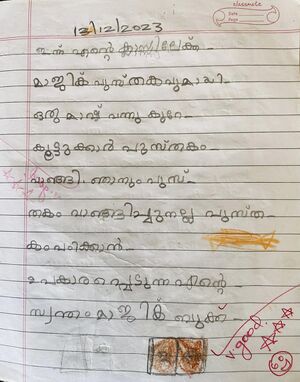 classmate
Date
Page
13/12/2023
ഇന്ന് എന്റെ ക്ലാസിലേക്ക്
മാജിക് പുസ്തകവുമായി
ഒരു മാഷ് വന്നു കുറേ
കൂട്ടുക്കാർ പുസ്തകം
വാങ്ങി. ഞാനും പുസ്
തകം വാങ്ങിച്ചു നല്ല പുസ്ത
കം പഠിക്കാൻ
ഉപകാരപ്പെടുന്ന എന്റെ
സ്വന്തം മാജിക് ബുക്ക്
v. good